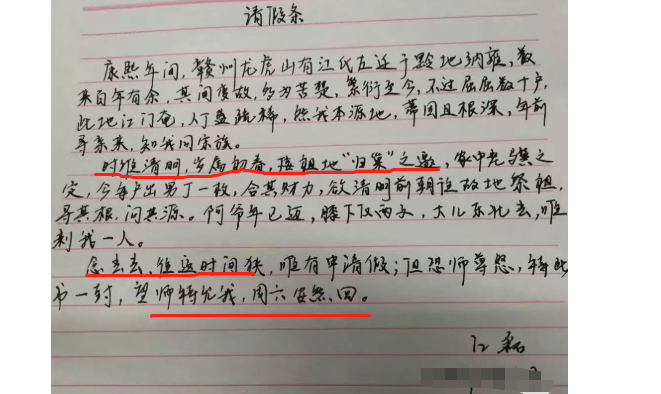 请假条
康熙年间，赣州龙虎山有江氏左迁于黔地纳雍，数
来百年有余，其间变故，多为苦楚，繁衍至今，不过屈屈数十户，
此地江门奄，人丁益疏稀，然我本源地，蒂固且根深，年前
寻亲来，知我同宗族。
时惟清明，岁属初春，接祖地“归巢”之邀，家中老与
定，今每户出男丁一枚，合其财力，欲清明前朝迨故地祭祖，
寻其根，问其源。阿爷年已迈，膝下仅两文，大儿东北去，唯
剩我一人。
念去去、往返时间狭，唯有申请假；但恐师尊怒，转此
书一封，望师特允我，周六安然回。
江磊